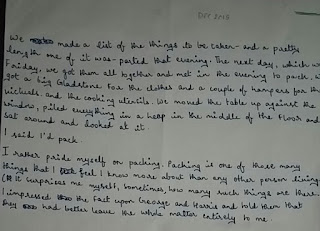 DEC 2013
We made a list of the things to be taken- and a pretty
length one of it was- parted that evening. The next day, which w
Faiday, we got them all together and met in the evening to pack. w
got a big Gladstone for the clothes and a couple of hampers for th
victuals and the cooking utensils. We moved the table up against the
window, piled everything in a heap in the middle of the floor and
sat around and looked at it.
I said I'd pack
I rather pride myself on packing. Packing is one of those many
things that I feel I know more about than any other person living.
(It surprises me myself, sometimes, how many such things are there.
I impressed the fact upon George and Harris and told them that
they had better leave the whole matter entirely to me.